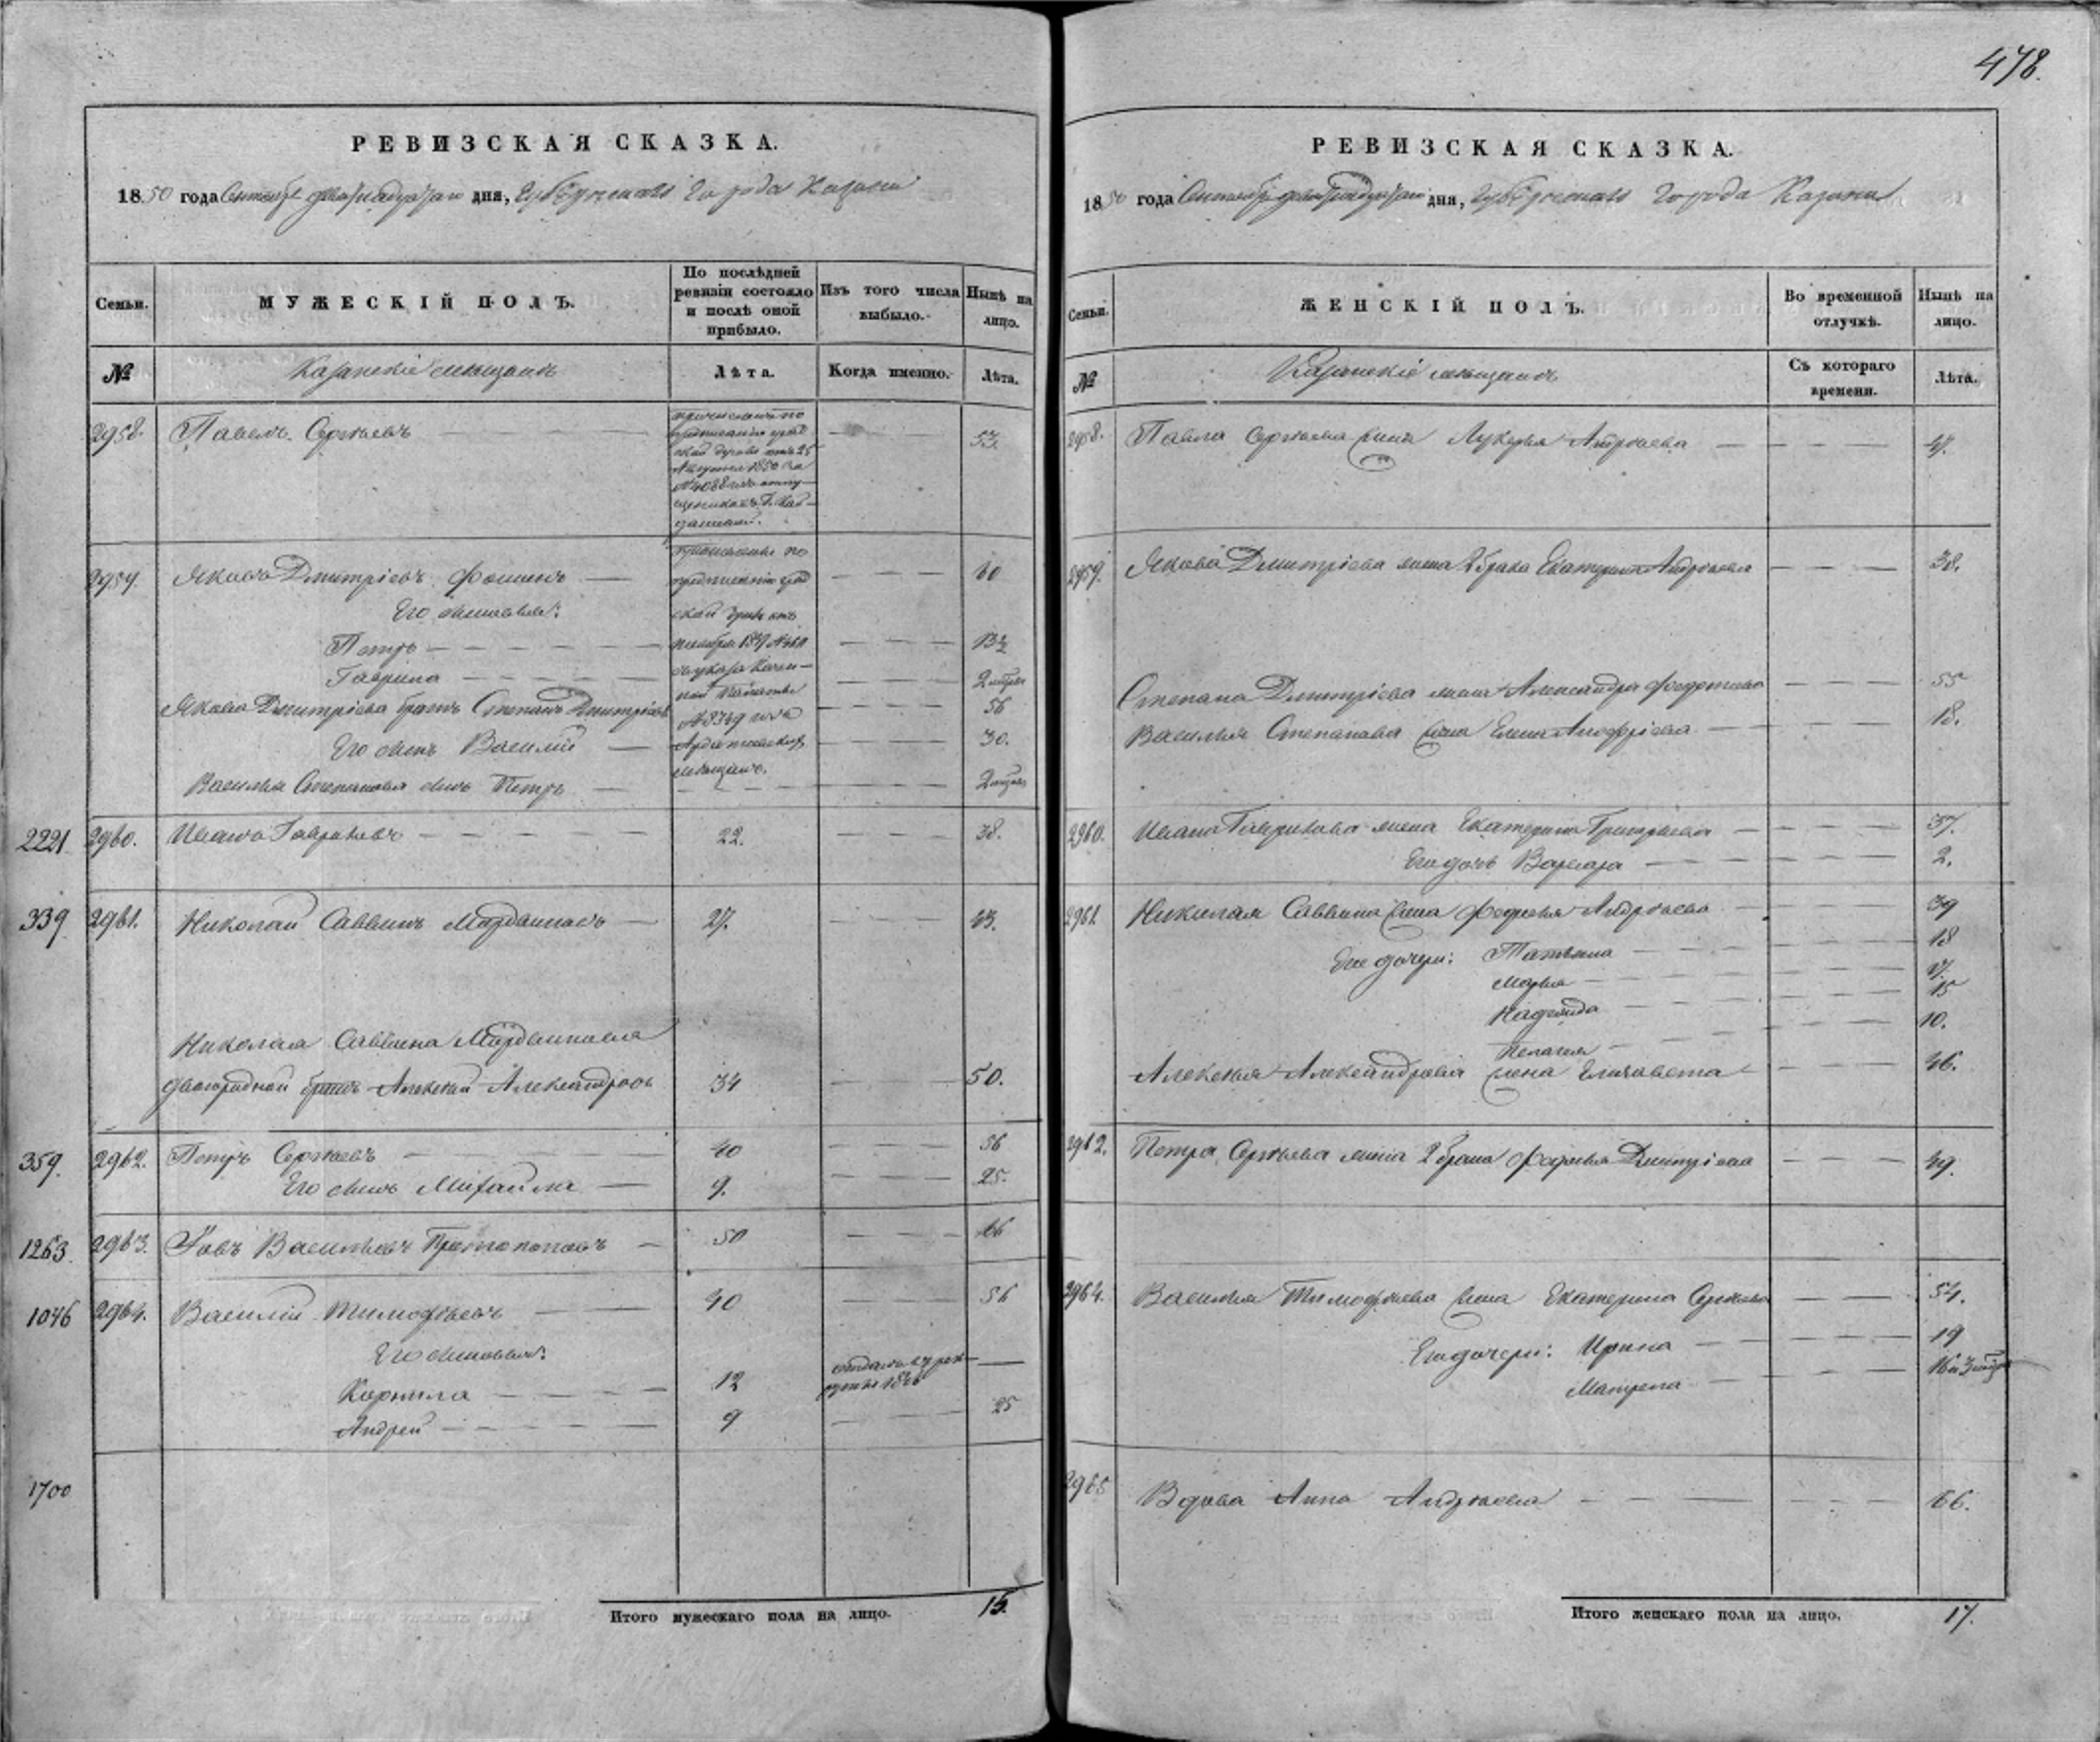 478.
РЕВИЗСКАЯ СКАЗКА.
1850 года Сентября двенадцатаго дня, Губернскаго города Казани
Семьи.
МУЖЕСКІЙ ПОЛЪ.
По послѣдней ревизіи состояло и послѣ оной прибыло.
Изъ того числа выбыло.
Нынѣ на лицо.
№
Казанскіе мещане
Лѣта.
Когда именно.
Лѣта.
2958. Павелъ Сергѣевъ 53
причисленъ по
предписанію град
ской думы отъ 25
Августа 1850 за
№ 4088 изъ
2959. Яковъ Дмитріевъ Фоминъ 60
Его сыновья:
Петръ 13½
Гаврила 2
Якова Дмитріева братъ Степанъ Дмитріевъ 56
Его сынъ Василій 30.
Василья Степанова сынъ Петръ 2
по
предписанію град
ской думы отъ
указа Казен-
ной Палаты
мещанъ.
2221 2960. Иванъ Гавриловъ 22. 38.
339 2961. Николай Саввинъ 27. 43.
Николая Саввина
двоюродный братъ Алексей Александровъ 34 50.
359. 2962. Петръ Сергѣевъ 40 56
Его сынъ Михайла 9. 25.
1263. 2963. Іовъ Васильевъ Протопоповъ 50 66
1046 2964. Василій Тимофѣевъ 40 56
Его сыновья:
Корнила 12 отданъ въ рек-
руты 1846
Андрей 9 25
1700
Итого мужескаго пола на лицо. 15.
РЕВИЗСКАЯ СКАЗКА.
1850 года Сентября двенадцатаго дня, Губернскаго города Казани
Семьи.
ЖЕНСКІЙ ПОЛЪ.
Во временной отлучкѣ.
Нынѣ на лицо.
№
Казанскіе мещане
Съ котораго времени.
Лѣта.
2958. Павла Сергѣева жена Лукерья Андреева 47.
2959. Якова Дмитріева жена 2 брака Екатерина Андреева 38.
Степана Дмитріева жена Александра Федотова 55
Василья Степанова жена Елена 18.
2960. Ивана Гаврилова жена Екатерина Григорьева 37.
Его дочь Варвара 2.
2961. Николая Саввина жена Федосья Андреева 39
Его дочери: Татьяна 18
Марья 17.
Надежда 15
Пелагея 10.
Алексея Александрова жена Елизавета 46.
2962. Петра Сергѣева жена 2 брака Дмитріева 49.
2964. Василья Тимофѣева жена Екатерина Сергѣева 54.
Его дочери: Ирина 19
Матрена 16
2965 Вдова Анна Андреева 66.
Итого женскаго пола на лицо. 17.